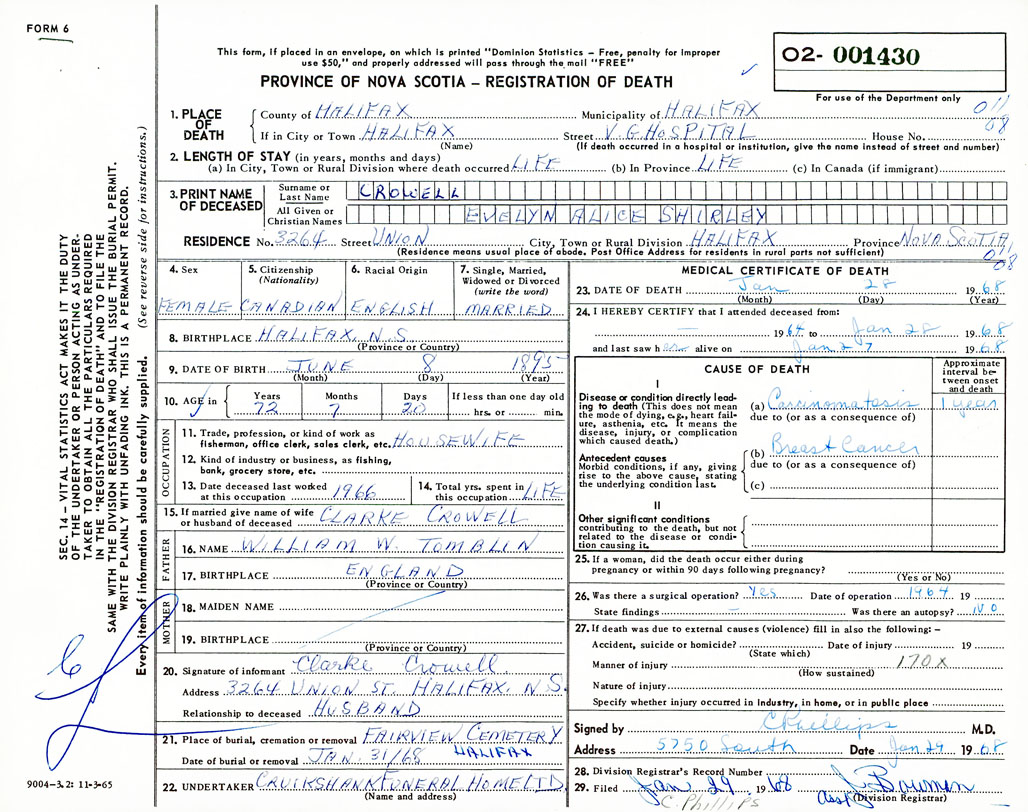 FORM 6
This form, if placed in an envelope, on which is printed "Dominion Statistics – Free, penalty for improper
use $50," and properly addressed will pass through the mail "FREE"
PROVINCE OF NOVA SCOTIA – REGISTRATION OF DEATH
O2- 001430
For use of the Department only
011
08
1. PLACE OF DEATH
County of HALIFAX Municipality of HALIFAX
If in City or Town HALIFAX Street V.G. HOSPITAL House No.
(Name) (If death occurred in a hospital or institution, give the name instead of street and number)
2. LENGTH OF STAY (in years, months and days)
(a) In City, Town or Rural Division where death occurred LIFE (b) In Province LIFE (c) In Canada (if immigrant)
3. PRINT NAME OF DECEASED
Surname or Last Name CROWELL
All Given or Christian Names EVELYN ALICE SHIRLEY
RESIDENCE No. 3264 Street UNION City, Town or Rural Division HALIFAX Province NOVA SCOTIA
(Residence means usual place of abode. Post Office Address for residents in rural parts not sufficient)
011
08
4. Sex FEMALE
5. Citizenship (Nationality) CANADIAN
6. Racial Origin ENGLISH
7. Single, Married, Widowed or Divorced (write the word) MARRIED
8. BIRTHPLACE HALIFAX, N.S.
(Province or Country)
9. DATE OF BIRTH JUNE 8 1895
(Month) (Day) (Year)
10. AGE in Years 72 Months 7 Days 20 If less than one day old hrs. or min.
OCCUPATION
11. Trade, profession, or kind of work as
fisherman, office clerk, sales clerk, etc. HOUSEWIFE
12. Kind of industry or business, as fishing,
bank, grocery store, etc.
13. Date deceased last worked
at this occupation 1966
14. Total yrs. spent in
this occupation LIFE
15. If married give name of wife
or husband of deceased CLARKE CROWELL
FATHER
16. NAME WILLIAM W. TOMBLIN
17. BIRTHPLACE ENGLAND
(Province or Country)
MOTHER
18. MAIDEN NAME
19. BIRTHPLACE
(Province or Country)
20. Signature of informant Clarke Crowell
Address 3264 UNION ST. HALIFAX. N.S.
Relationship to deceased HUSBAND
21. Place of burial, cremation or removal FAIRVIEW CEMETERY
HALIFAX
Date of burial or removal JAN. 31/68
22. UNDERTAKER CRUIKSHANK FUNERAL HOME LTD.
(Name and address)
MEDICAL CERTIFICATE OF DEATH
23. DATE OF DEATH Jan 28 1968
(Month) (Day) (Year)
24. I HEREBY CERTIFY that I attended deceased from:
— 1964 to Jan 28 1968
and last saw her alive on Jan 27 1968
CAUSE OF DEATH
Approximate interval between onset and death
I
Disease or condition directly leading to death (This does not mean the mode of dying, e.g., heart failure, asthenia, etc. It means the disease, injury, or complication which caused death.)
(a) Carcinomatosis 1 year
due to (or as a consequence of)
Antecedent causes
Morbid conditions, if any, giving rise to the above cause, stating the underlying condition last.
(b) Breast Cancer
due to (or as a consequence of)
(c)
II
Other significant conditions
contributing to the death, but not
related to the disease or condition causing it.
25. If a woman, did the death occur either during
pregnancy or within 90 days following pregnancy?
(Yes or No)
26. Was there a surgical operation? Yes Date of operation 1964 19
State findings — Was there an autopsy? NO
27. If death was due to external causes (violence) fill in also the following: –
Accident, suicide or homicide? Date of injury 19
(State which)
Manner of injury 170X
(How sustained)
Nature of injury
Specify whether injury occurred in industry, in home, or in public place
Signed by C Phillips M.D.
Address 5750 South Date Jan 29 1968
28. Division Registrar's Record Number
29. Filed Jan 29 1968 J. Bowman
C. Phillips Asst (Division Registrar)
SEC. 14 – VITAL STATISTICS ACT MAKES IT THE DUTY
OF THE UNDERTAKER OR PERSON ACTING AS UNDER-
TAKER TO OBTAIN ALL THE PARTICULARS REQUIRED
IN THE "REGISTRATION OF DEATH" AND TO FILE THE
SAME WITH THE DIVISION REGISTRAR WHO SHALL ISSUE THE BURIAL PERMIT.
WRITE PLAINLY WITH UNFADING INK. THIS IS A PERMANENT RECORD.
Every item of information should be carefully supplied. (See reverse side for instructions.)
9004-3.2: 11-3-65